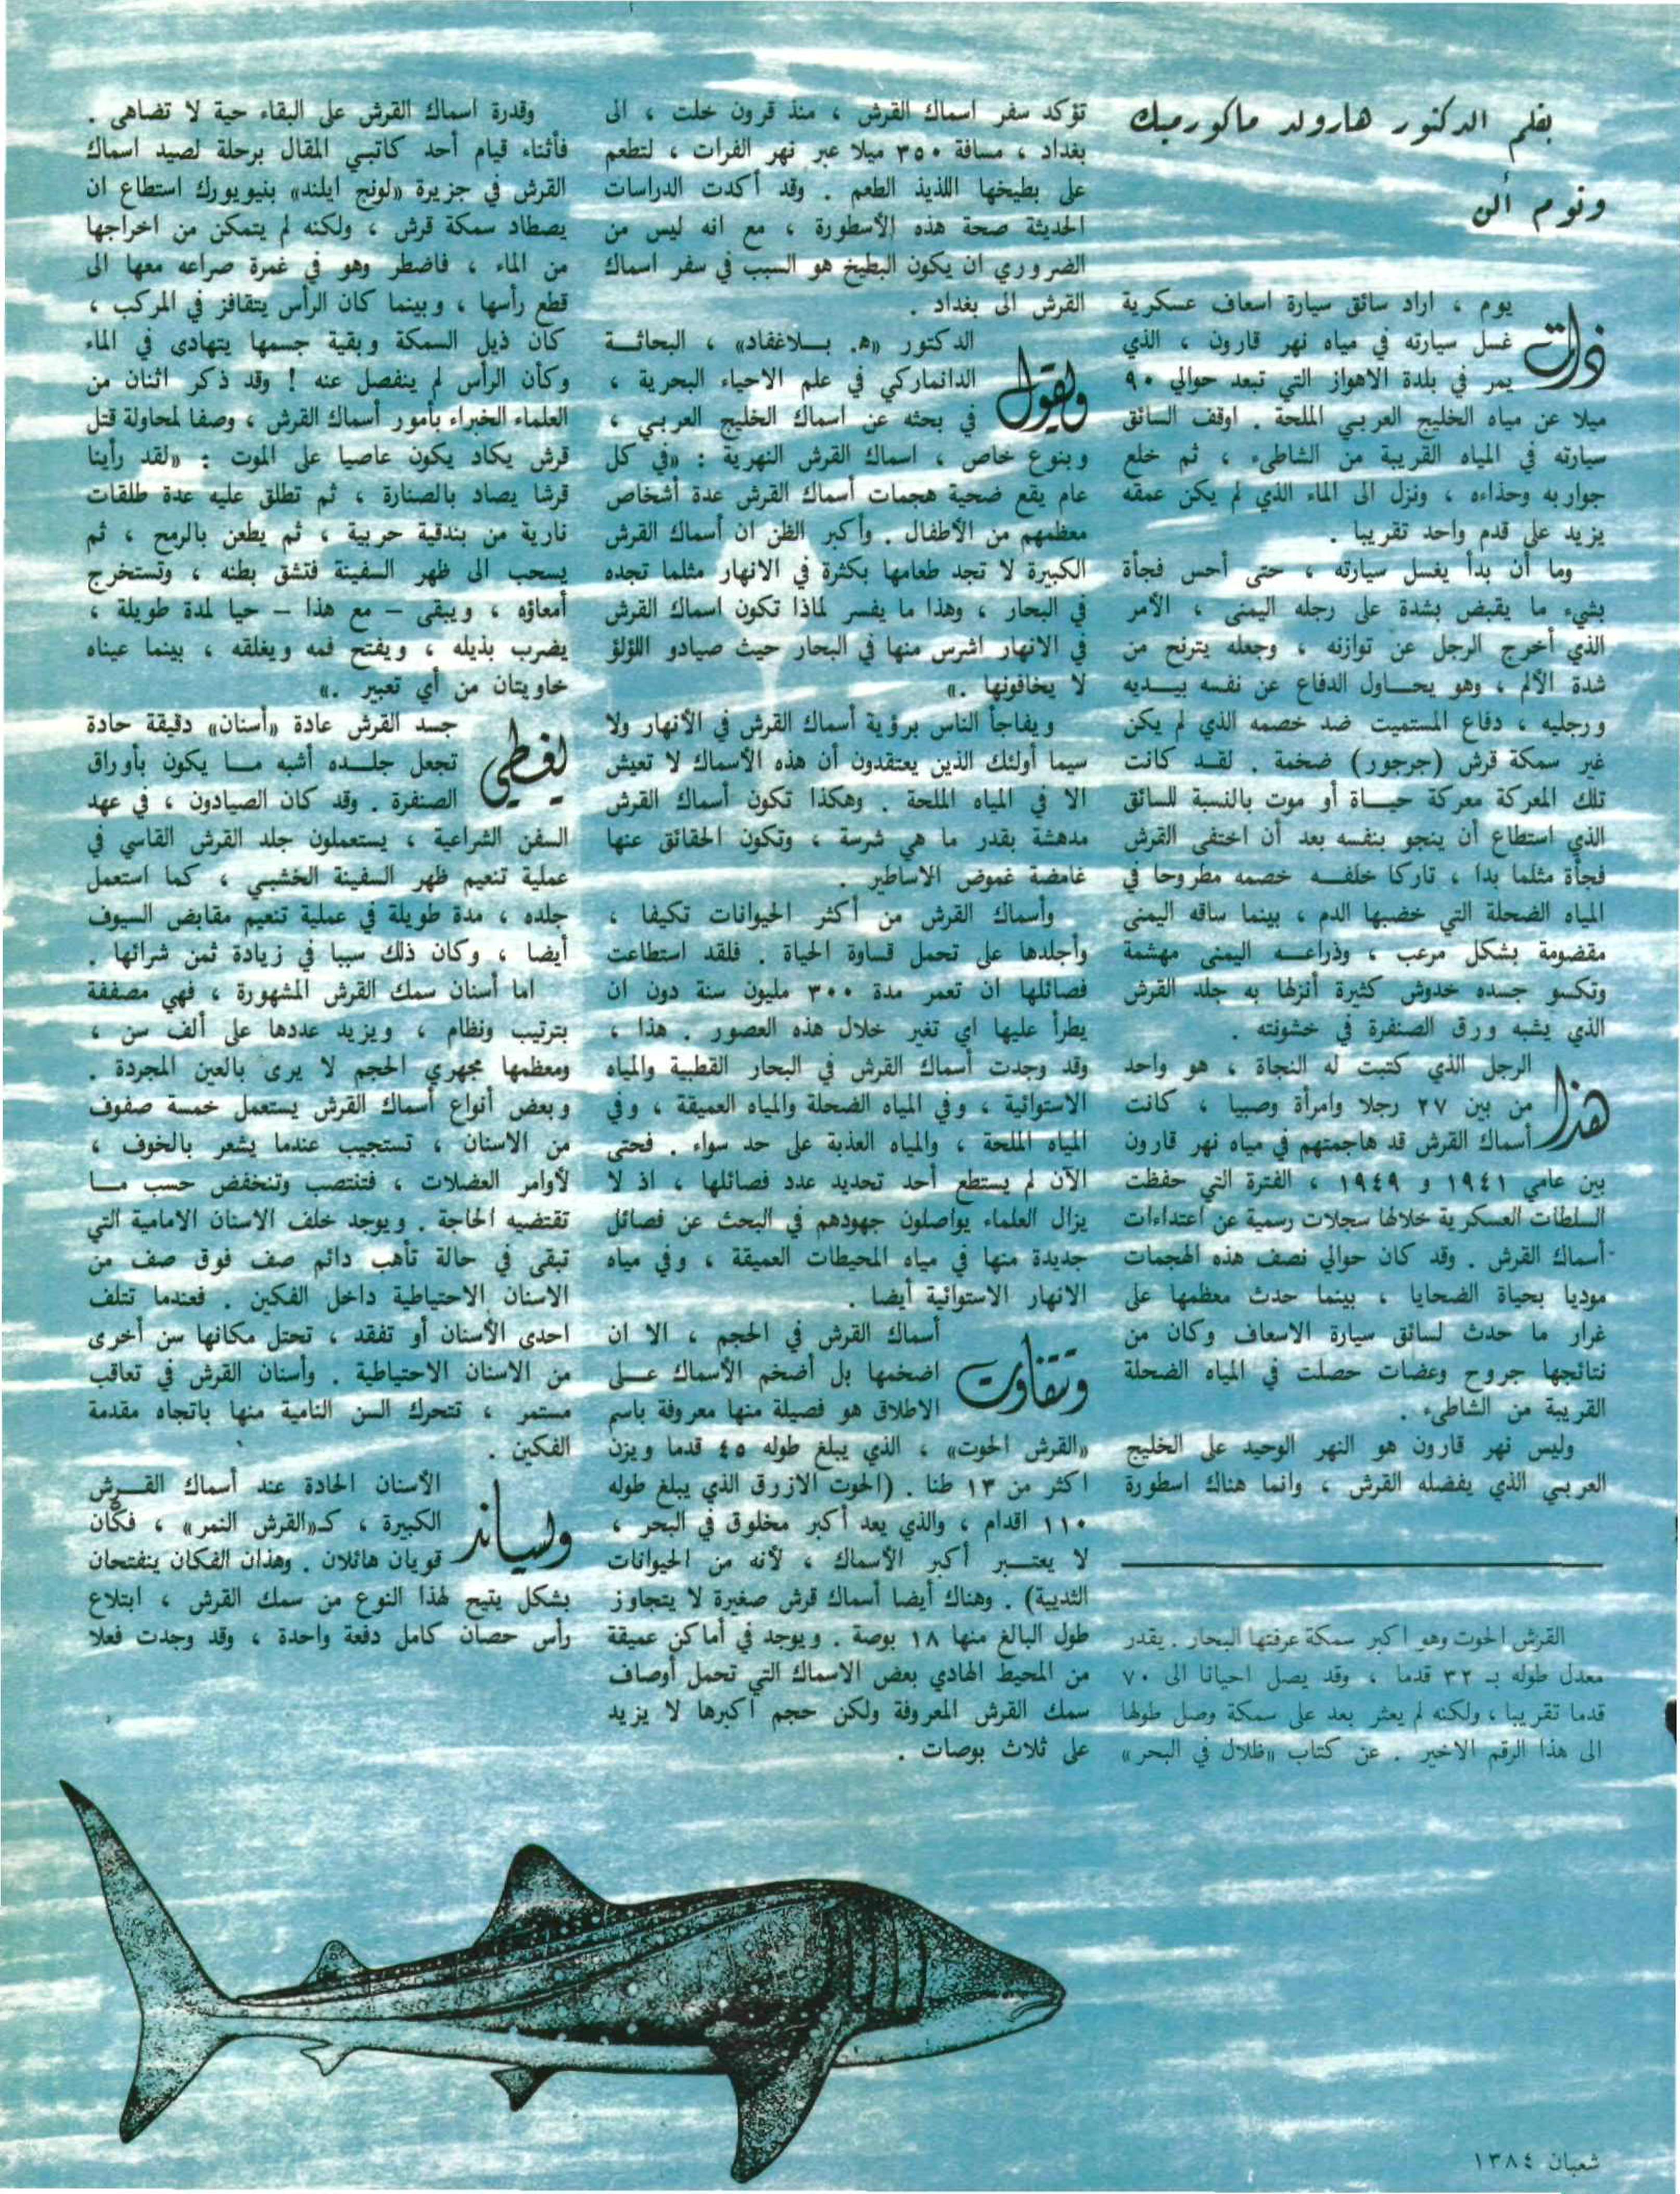 بقلم الدكتور هارولد ماكورميك
وتوم ألن
ذات يوم ، اراد سائق سيارة اسعاف عسكرية
غسل سيارته في مياه نهر قارون ، الذي
يمر في بلدة الاهواز التي تبعد حوالي ٩٠
ميلا عن مياه الخليج العربي الملحة . اوقف السائق
سيارته في المياه القريبة من الشاطىء ، ثم خلع
جواربه وحذاءه ، ونزل الى الماء الذي لم يكن عمقه
يزيد على قدم واحد تقريبا .
وما أن بدأ يغسل سيارته ، حتى أحس فجأة
بشيء ما يقبض بشدة على رجله اليمنى ، الأمر
الذي أخرج الرجل عن توازنه ، وجعله يترنح من
شدة الألم ، وهو يحاول الدفاع عن نفسه بيديه
ورجليه ، دفاع المستميت ضد خصمه الذي لم يكن
غير سمكة قرش (جرجور) ضخمة . لقد كانت
تلك المعركة معركة حياة أو موت بالنسبة للسائق
الذي استطاع أن ينجو بنفسه بعد أن اختفى القرش
فجأة مثلما بدا ، تاركا خلفه خصمه مطروحا في
المياه الضحلة التي خضبها الدم ، بينما ساقه اليمنى
مقضومة بشكل مرعب ، وذراعه اليمنى مهشمة
وتكسو جسده خدوش كثيرة أنزلها به جلد القرش
الذي يشبه ورق الصنفرة في خشونته .
هذا الرجل الذي كتبت له النجاة ، هو واحد
من بين ٢٧ رجلا وامرأة وصبيا ، كانت
أسماك القرش قد هاجمتهم في مياه نهر قارون
بين عامي ١٩٤١ و ١٩٤٩ ، الفترة التي حفظت
السلطات العسكرية خلالها سجلات رسمية عن اعتداءات
أسماك القرش . وقد كان حوالي نصف هذه الهجمات
موديا بحياة الضحايا ، بينما حدث معظمها على
غرار ما حدث لسائق سيارة الاسعاف وكان من
نتائجها جروح وعضات حصلت في المياه الضحلة
القريبة من الشاطىء .
وليس نهر قارون هو النهر الوحيد على الخليج
العربي الذي يفضله القرش ، وانما هناك اسطورة
تؤكد سفر اسماك القرش ، منذ قرون خلت ، الى
بغداد ، مسافة ٣٥٠ ميلا عبر نهر الفرات ، لتطعم
على بطيخها اللذيذ الطعم . وقد أكدت الدراسات
الحديثة صحة هذه الأسطورة ، مع انه ليس من
الضروري ان يكون البطيخ هو السبب في سفر اسماك
القرش الى بغداد .
ويقول الدكتور «ه. بلاغفاد» ، البحاثة
الدانماركي في علم الاحياء البحرية ،
في بحثه عن اسماك الخليج العربي ،
وبنوع خاص ، اسماك القرش النهرية : «في كل
عام يقع ضحية هجمات أسماك القرش عدة أشخاص
معظمهم من الأطفال . وأكبر الظن ان أسماك القرش
الكبيرة لا تجد طعامها بكثرة في الانهار مثلما تجده
في البحار ، وهذا ما يفسر لماذا تكون اسماك القرش
في الانهار اشرس منها في البحار حيث صيادو اللؤلؤ
لا يخافونها .»
ويفاجأ الناس برؤية أسماك القرش في الأنهار ولا
سيما أولئك الذين يعتقدون أن هذه الأسماك لا تعيش
الا في المياه الملحة . وهكذا تكون أسماك القرش
مدهشة بقدر ما هي شرسة ، وتكون الحقائق عنها
غامضة غموض الاساطير .
وأسماك القرش من أكثر الحيوانات تكيفا ،
وأجلدها على تحمل قساوة الحياة . فلقد استطاعت
فصائلها ان تعمر مدة ٣٠٠ مليون سنة دون ان
يطرأ عليها اي تغير خلال هذه العصور . هذا ،
وقد وجدت أسماك القرش في البحار القطبية والمياه
الاستوائية ، وفي المياه الضحلة والمياه العميقة ، وفي
المياه الملحة ، والمياه العذبة على حد سواء . فحتى
الآن لم يستطع أحد تحديد عدد فصائلها ، اذ لا
يزال العلماء يواصلون جهودهم في البحث عن فصائل
جديدة منها في مياه المحيطات العميقة ، وفي مياه
الانهار الاستوائية أيضا .
وتتفاوت أسماك القرش في الحجم ، الا ان
اضخمها بل أضخم الأسماك على
الاطلاق هو فصيلة منها معروفة باسم
«القرش الحوت» ، الذي يبلغ طوله ٤٥ قدما ويزن
اكثر من ١٣ طنا . (الحوت الازرق الذي يبلغ طوله
١١٠ اقدام ، والذي يعد أكبر مخلوق في البحر ،
لا يعتبر أكبر الأسماك ، لأنه من الحيوانات
الثديية) . وهناك أيضا أسماك قرش صغيرة لا يتجاوز
طول البالغ منها ١٨ بوصة . ويوجد في أماكن عميقة
من المحيط الهادي بعض الاسماك التي تحمل أوصاف
سمك القرش المعروفة ولكن حجم اكبرها لا يزيد
على ثلاث بوصات .
وقدرة اسماك القرش على البقاء حية لا تضاهى .
فأثناء قيام أحد كاتبي المقال برحلة لصيد اسماك
القرش في جزيرة «لونج ايلند» بنيويورك استطاع ان
يصطاد سمكة قرش ، ولكنه لم يتمكن من اخراجها
من الماء ، فاضطر وهو في غمرة صراعه معها الى
قطع رأسها ، وبينما كان الرأس يتقافز في المركب ،
كان ذيل السمكة وبقية جسمها يتهادى في الماء
وكأن الرأس لم ينفصل عنه ! وقد ذكر اثنان من
العلماء الخبراء بأمور أسماك القرش ، وصفا لمحاولة قتل
قرش يكاد يكون عاصيا على الموت : «لقد رأينا
قرشا يصاد بالصنارة ، ثم تطلق عليه عدة طلقات
نارية من بندقية حربية ، ثم يطعن بالرمح ، ثم
يسحب الى ظهر السفينة فتشق بطنه ، وتستخرج
أمعاؤه ، ويبقى - مع هذا - حيا لمدة طويلة ،
يضرب بذيله ، ويفتح فمه ويغلقه ، بينما عيناه
خاويتان من أي تعبير .»
يغطي جسد القرش عادة «أسنان» دقيقة حادة
تجعل جلده أشبه ما يكون بأوراق
الصنفرة . وقد كان الصيادون ، في عهد
السفن الشراعية ، يستعملون جلد القرش القاسي في
عملية تنعيم ظهر السفينة الخشبي ، كما استعمل
جلده ، مدة طويلة في عملية تنعيم مقابض السيوف
أيضا ، وكان ذلك سببا في زيادة ثمن شرائها .
اما أسنان سمك القرش المشهورة ، فهي مصففة
بترتيب ونظام ، ويزيد عددها على ألف سن ،
ومعظمها مجهري الحجم لا يرى بالعين المجردة .
وبعض أنواع أسماك القرش يستعمل خمسة صفوف
من الاسنان ، تستجيب عندما يشعر بالخوف ،
لأوامر العضلات ، فتنتصب وتنخفض حسب ما
تقتضيه الحاجة . ويوجد خلف الاسنان الامامية التي
تبقى في حالة تأهب دائم صف فوق صف من
الاسنان الاحتياطية داخل الفكين . فعندما تتلف
احدى الأسنان أو تفقد ، تحتل مكانها سن أخرى
من الاسنان الاحتياطية . وأسنان القرش في تعاقب
مستمر ، تتحرك السن النامية منها باتجاه مقدمة
الفكين .
ويساند الأسنان الحادة عند أسماك القرش
الكبيرة ، كـ«القرش النمر» ، فكّان
قويان هائلان . وهذان الفكان ينفتحان
بشكل يتيح لهذا النوع من سمك القرش ، ابتلاع
رأس حصان كامل دفعة واحدة ، وقد وجدت فعلا
القرش الحوت وهو اكبر سمكة عرفتها البحار . يقدر
معدل طوله بـ ٣٢ قدما ، وقد يصل احيانا الى ٧٠
قدما تقريبا ، ولكنه لم يعثر بعد على سمكة وصل طولها
الى هذا الرقم الاخير . عن كتاب «ظلال في البحر»
شعبان ١٣٨٤